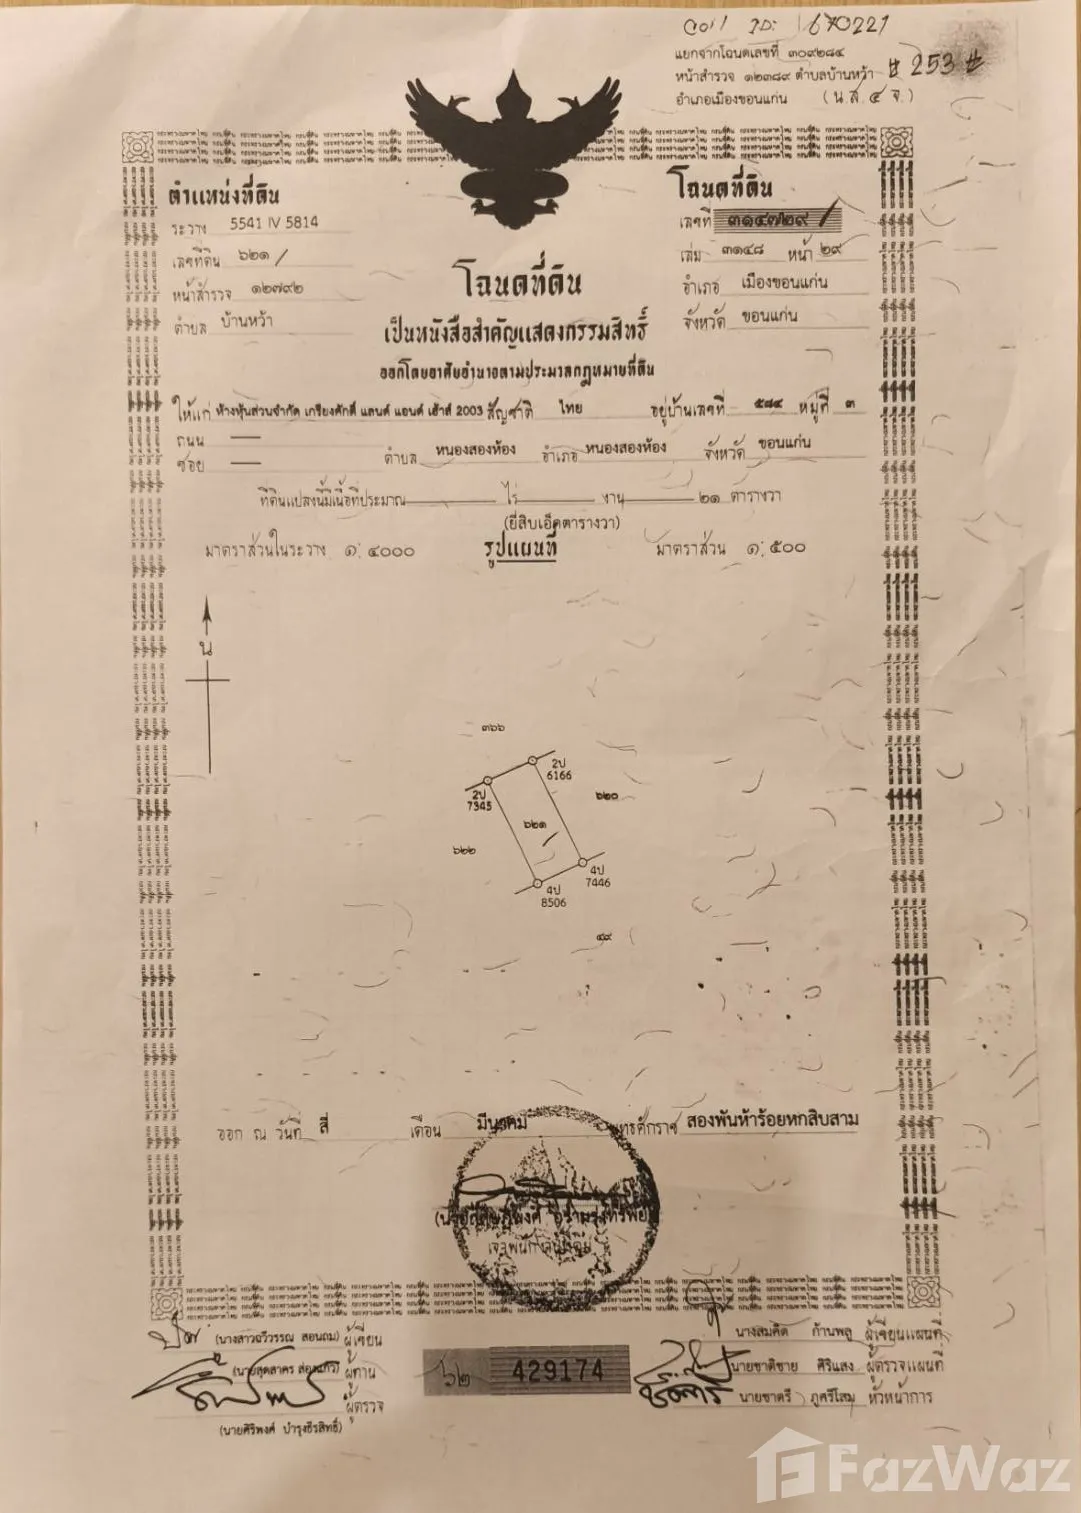 แยกจากโฉนดเลขที่ ๓๐๙๒๘๔
หน้าสำรวจ ๑๒๓๘๙ ตำบลบ้านหว้า # 253 #
อำเภอเมืองขอนแก่น (น.ส.๔ จ.)
ตำแหน่งที่ดิน
ระวาง 5541 IV 5814
เลขที่ดิน ๖๒๑
หน้าสำรวจ ๑๒๗๙๒
ตำบล บ้านหว้า
โฉนดที่ดิน
เลขที่ ๓๑๔๗๒๙
เล่ม ๓๑๔๘ หน้า ๒๙
อำเภอ เมืองขอนแก่น
จังหวัด ขอนแก่น
โฉนดที่ดิน
เป็นหนังสือสำคัญแสดงกรรมสิทธิ์
ออกโดยอาศัยอำนาจตามประมวลกฎหมายที่ดิน
ให้แก่ ห้างหุ้นส่วนจำกัด เกรียงศักดิ์ แลนด์ แอนด์ เฮ้าส์ 2003 สัญชาติ ไทย อยู่บ้านเลขที่ ๕๘๔ หมู่ที่ ๓
ถนน —
ซอย — ตำบล หนองสองห้อง อำเภอ หนองสองห้อง จังหวัด ขอนแก่น
ที่ดินแปลงนี้มีเนื้อที่ประมาณ — ไร่ — งาน — ๒๑ ตารางวา
(ยี่สิบเอ็ดตารางวา)
มาตราส่วนในระวาง ๑:๔๐๐๐ รูปแผนที่ มาตราส่วน ๑:๕๐๐
น
๓๖๖
2ป
6166
2ป
7345
๖๒๐
๖๒๑
๖๒๒
4ป
7446
4ป
8506
๔๙
ออก ณ วันที่ สี่ เดือน มีนาคม พุทธศักราช สองพันห้าร้อยหกสิบสาม
(นางสาวฉวีวรรณ สอนถม) ผู้เขียน
ผู้ทาน
ผู้ตรวจ
(นายศิริพงศ์ บำรุงธีรสิทธิ์)
๖๒ 429174
นางสมคิด ก้านพลู ผู้เขียนแผนที่
นายชาติชาย ศิริแสง ผู้ตรวจแผนที่
นายชาตรี ภูศรีโสม หัวหน้าการ
FazWaz